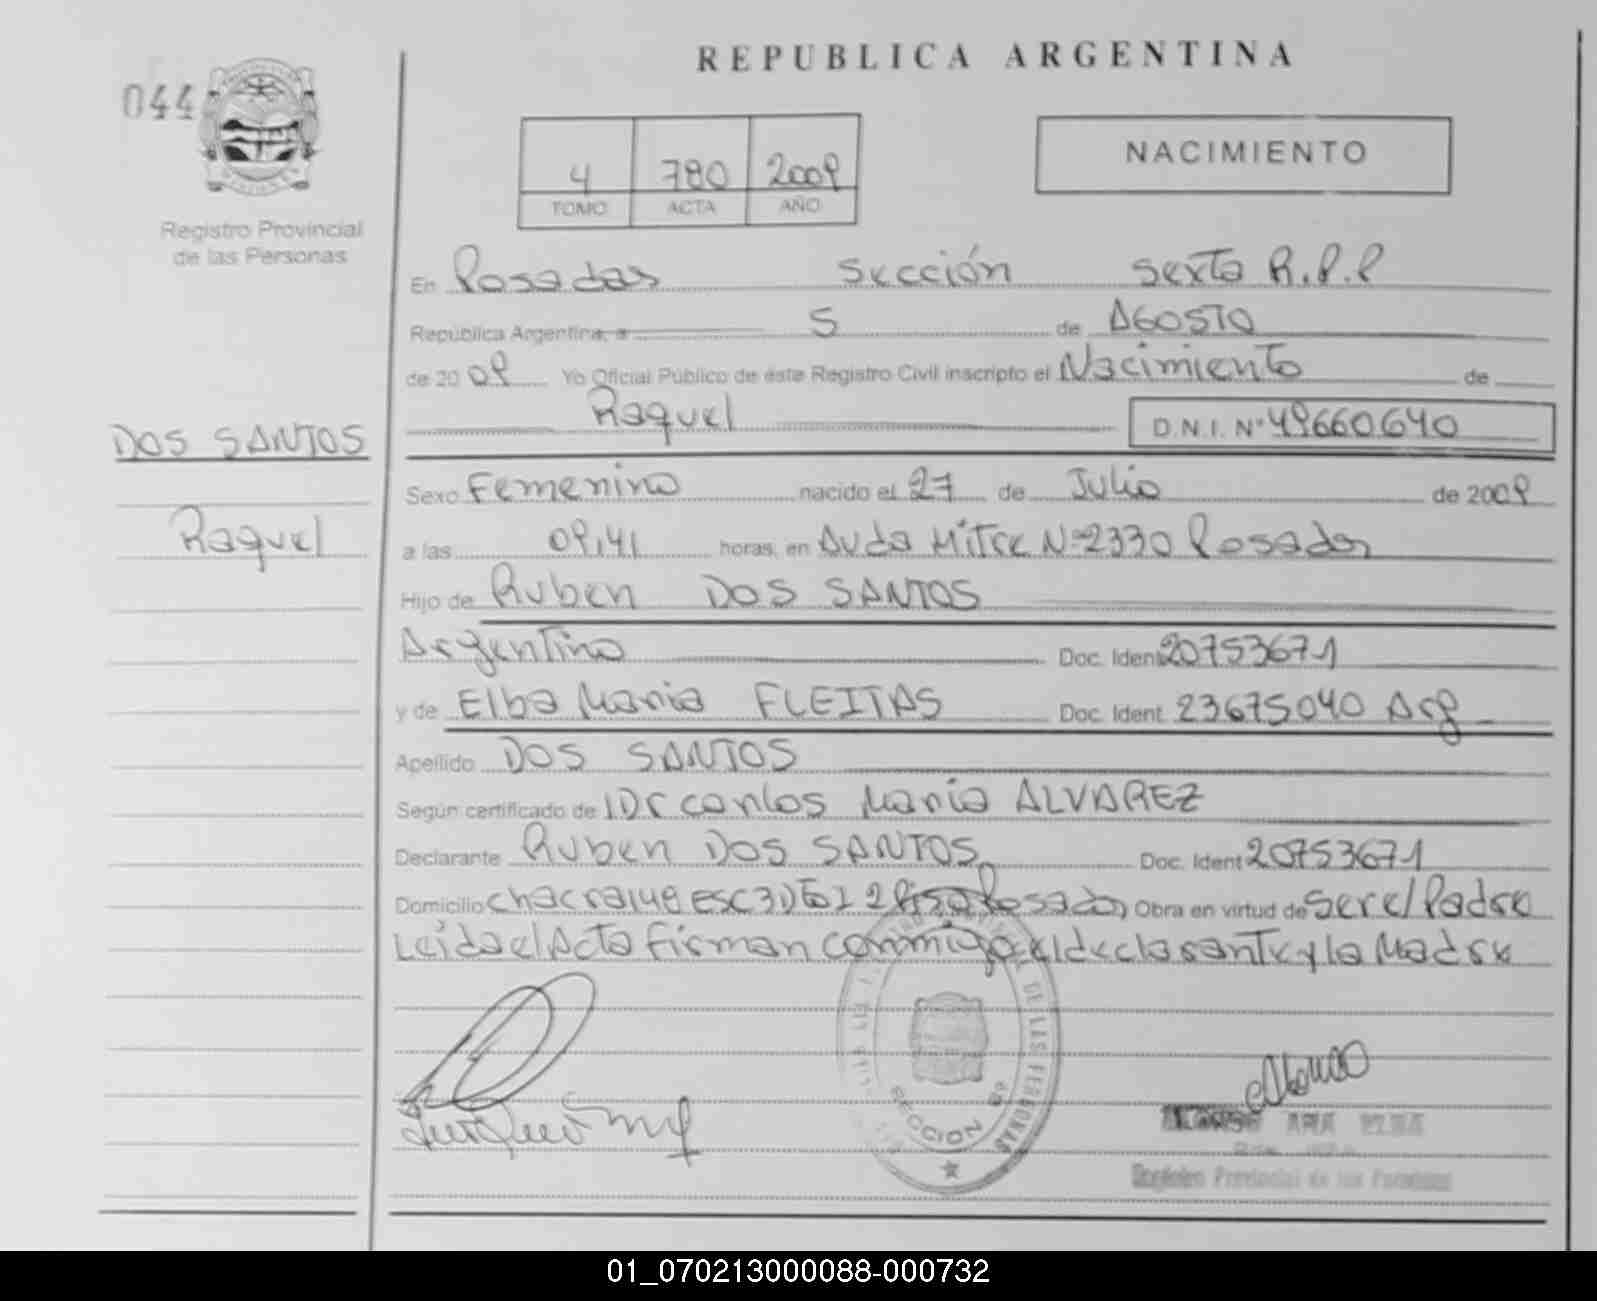 REPUBLICA ARGENTINA
044
4 780 2009
TOMO ACTA AÑO
NACIMIENTO
Registro Provincial
de las Personas
En Posadas Sección Sexta R.P.P
República Argentina, a 5 de AGOSTO
de 20 09 Yo Oficial Público de éste Registro Civil inscripto el Nacimiento de
Raquel D.N.I. Nº 49660640
DOS SANTOS
Raquel
Sexo Femenino nacido el 27 de Julio de 2009
a las 09,41 horas, en Avda Mitre Nº 2330 Posadas
Hijo de Ruben DOS SANTOS
Argentino Doc. Ident 20753671
y de Elba Maria FLEITAS Doc. Ident. 23675040 Arg
Apellido DOS SANTOS
Según certificado de Dr Carlos Maria ALVAREZ
Declarante Ruben DOS SANTOS Doc. Ident 20753671
Domicilio chacra 148 ESC 3 2 Piso Posadas Obra en virtud de Ser el Padre
Leida el Acta firman conmigo el declarante y la Madre
DE LAS PERSONAS
SECCION 6ª
Registro Provincial de las Personas
01_070213000088-000732